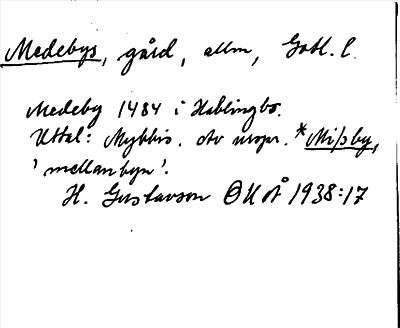 Medebys, gård, allm, Gotl. l.
Medeby 1484 i Hablingbo.
Uttal: Mybbis. av urspr. *Miþby,
'mellanbyn'.
H. Gustavson ÖUÅ 1938:17